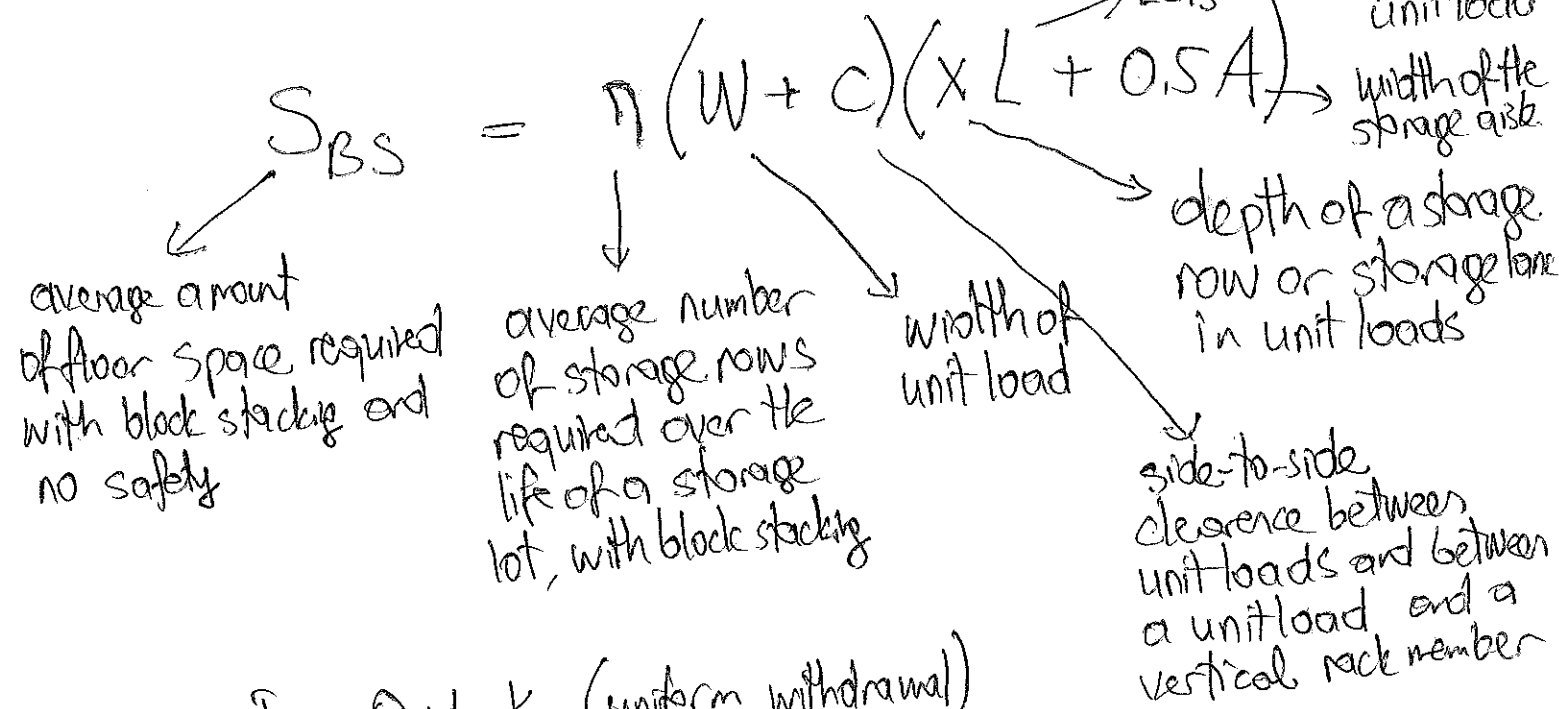 unit load
S_BS = η(W + C)(xL + 0.5A)
width of the
storage aisle
depth of a storage
row or storage lane
in unit loads
average amount
of floor space required
with block stacking and
no safety
average number
of storage rows
required over the
life of a storage
lot, with block stacking
width of
unit load
side-to-side
clearence between
unit loads and between
a unit load and a
vertical rack member
(uniform withdrawal)